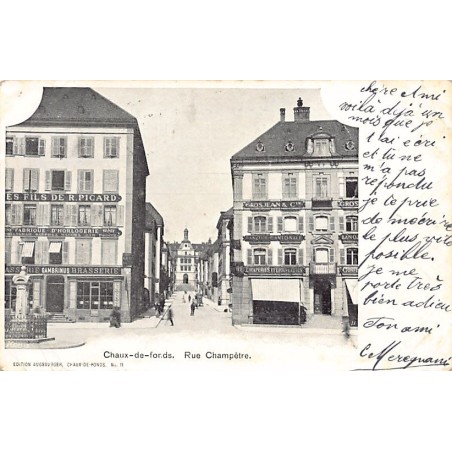 LES FILS DE R. PICARD
FABRIQUE D'HORLOGERIE
GAMBRINUS BRASSERIE
GROSJEAN & CIE
BANQUE CANTONALE
chère Ami
voilà déjà un
mois que je
t'ai écri
et tu ne
m'a pas
répondu
je te prie
de mécrire
le plus vite
possible.
je me
porte très
bien adieu
Ton ami
C Meregnani
Chaux-de-fonds. Rue Champêtre.
EDITION AUGSBURGER, CHAUX-DE-FONDS. No. 11